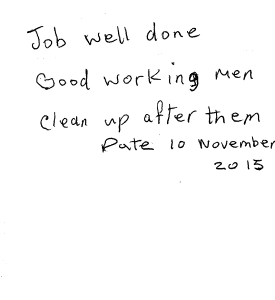 Job well done
Good working men
clean up after them
Date 10 November
2015